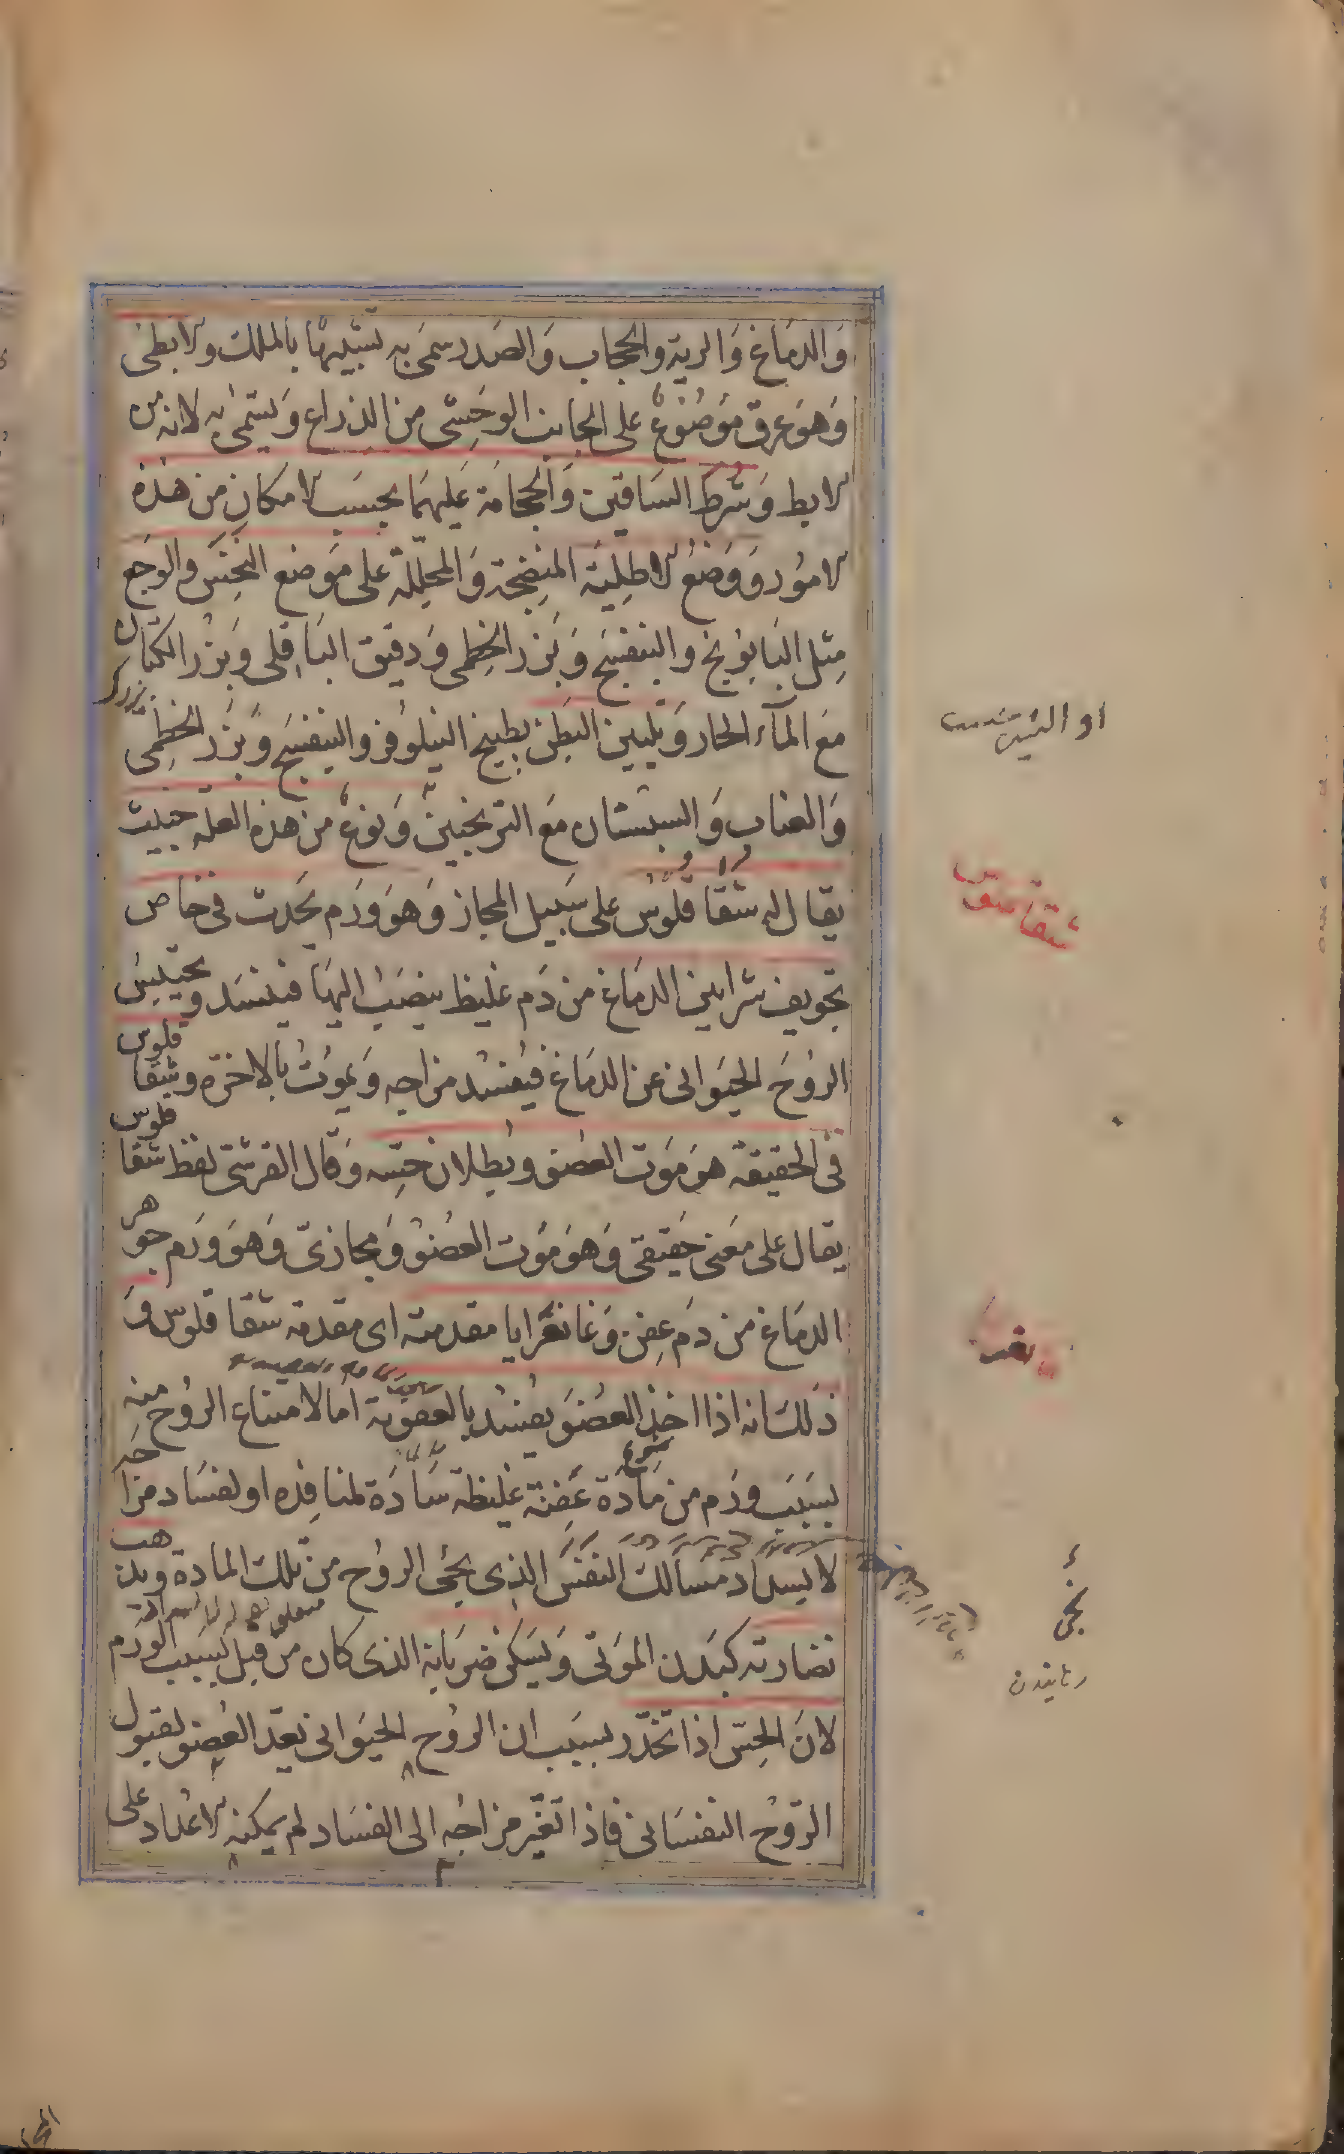 وَالدمَاغ وَالرية والحجاب وَالصَدر سمى به تشبيها بالملك والابطى
وَهوَ عرق مَوضُوعٌ على الجانب الوَحِشى من الذراع وَيسَمىٰ به لانه من
الابط وَشَرط السَاقين وَالحجامَة عَليهمَا بحسَب الامكان من هٰذه
الامُور وَوَضعُ الاطلِيَة المنضِجَة وَالمحلِّلة على مَوضع النخس والوَجَع
مِثل البَابونج والبنفسَج وَبَزر الخِطمى وَدقيق البَاقلى وَبَزر الكتان
بزرك
مَعَ المآء الحار وَتليين البَطن بطبيخ النيلوُفر والبنفسَج وَبَزر الخِطمى
وَالعناب وَالسبستان مَعَ الترنجبين وَنوعٌ من هذه العلة خبيث
يقال له شَقَاقلُوُس على سَبيل المجاز وَهوَ وَرَم يحَدث فى خاص
تجويف شرايين الدمَاغ من دَم غليظ ينصَبُ اليهَا فيفسَد ويحتبسُ
الروُحَ الحيَوانى عن الدمَاغ فيُفسُد مزاجه وَيموُت بالاخرَة وشقَاقلوس
فى الحقيقة هوَ مَوت العضو وبُطلان حسِّه وَقال القرشىّ لفظ شقاقلوس
يقال على مَعنى حَقيقى وَهوَ مَوت العُضوُ وَمجازىّ وَهوَ وَرَم جوهر
الدمَاغ من دَم عفِن وَغانغرايا مقدمته اى مقدمة شقاقلوُس وَ
ذلك انه اذا اخذ العضو يفسُد بالعفوُنة امَا لامتناع الروُح منه
بسَبب ورَم من مَادة عَفِنة غليظة سَادَة لمنافذه او لفسَاد مزاجه
لانسداد مسَالك النفَس الذى يحيى الروُح من تلك المادة ويذهب
نضارته كبَدن الموَتى وَيسَكن ضربَانه الذى كان من قبل لسَبب الورَم
لانَ الحِسّ اذا تخدّر بسَبب ان الروُح الحيَوانى يعدّ العُضو لقبول
الرّوُح النفسَانى فاذا تغيّر مزاجُه الى الفسَاد لم يمكنه الاعداد على
شقاقلوس
يحيى
رهانيدن